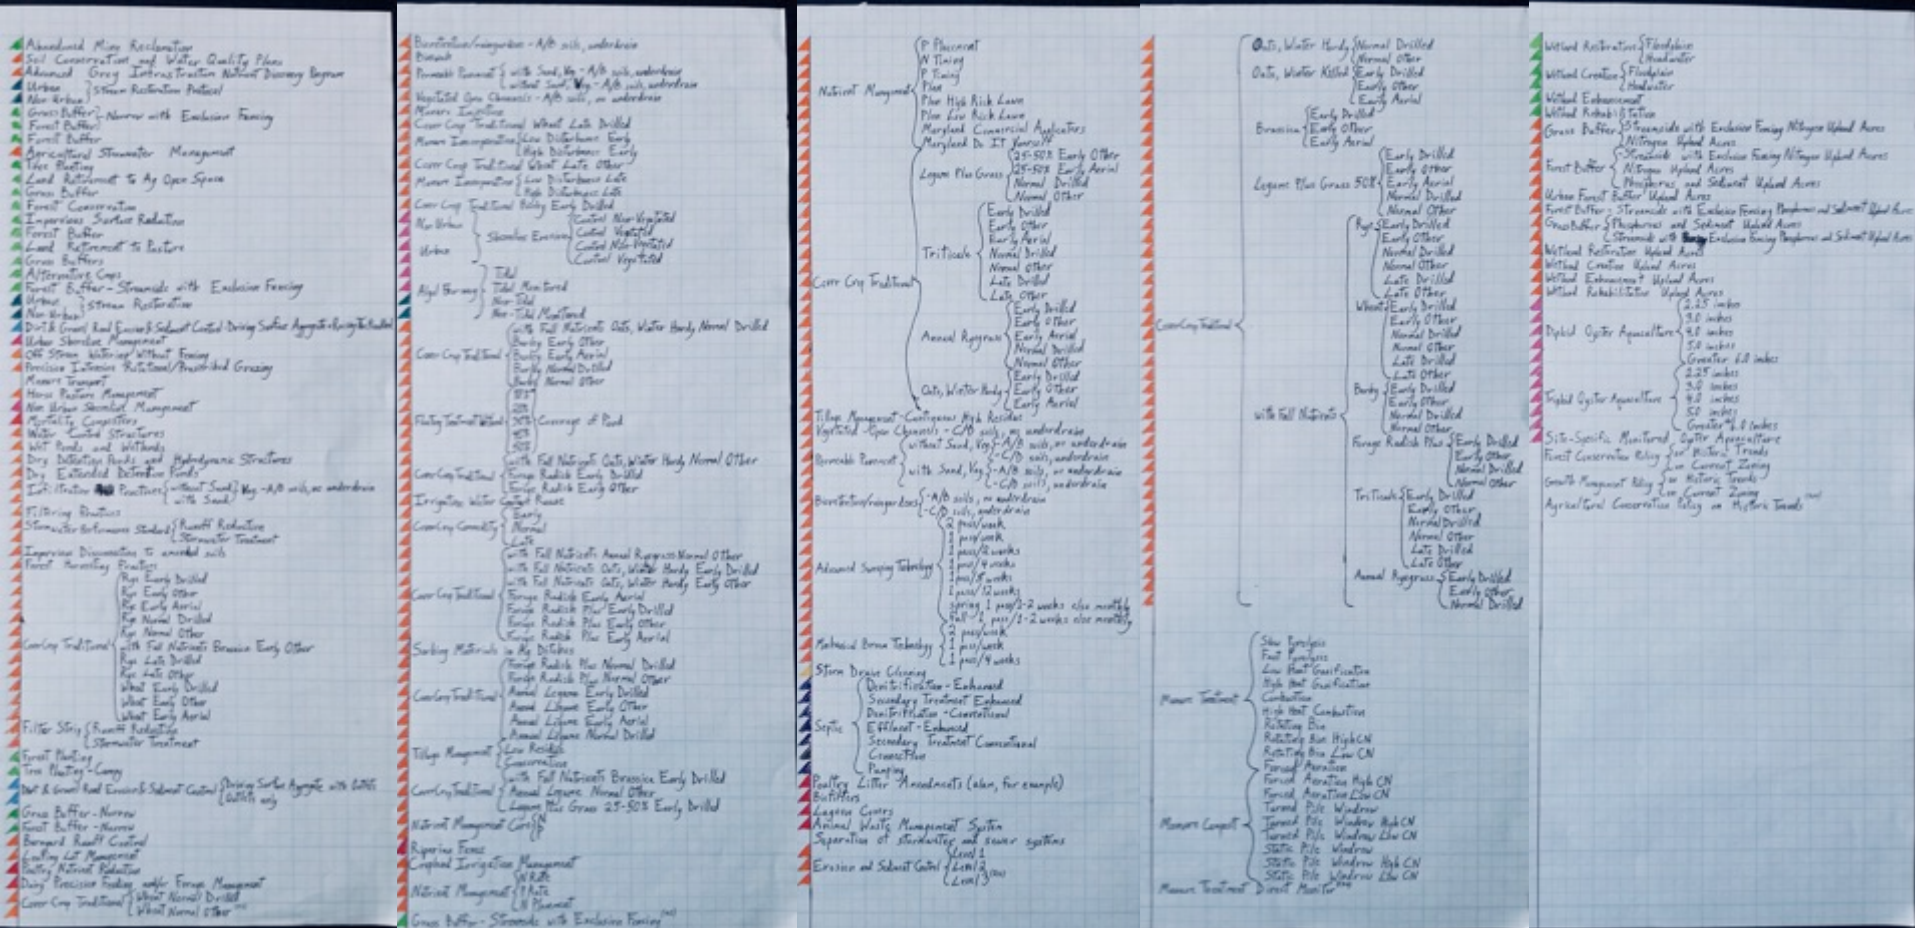 Abandoned Mine Reclamation
Soil Conservation and Water Quality Plans
Advanced Grey Infrastructure Nutrient Discovery Program
Urban
Non-Urban } Stream Restoration Protocol
Grass Buffer
Forest Buffer } Narrow with Exclusion Fencing
Forest Buffer
Agricultural Stormwater Management
Tree Planting
Land Retirement to Ag Open Space
Grass Buffer
Forest Conservation
Impervious Surface Reduction
Forest Buffer
Land Retirement to Pasture
Grass Buffers
Alternative Crops
Forest Buffer - Streamside with Exclusion Fencing
Urban
Non-Urban } Stream Restoration
Dirt & Gravel Road Erosion & Sediment Control - Driving Surface Aggregate + Raising the Roadbed
Urban Shoreline Management
Off Stream Watering Without Fencing
Precision Intensive Rotational/Prescribed Grazing
Manure Transport
Horse Pasture Management
Non Urban Shoreline Management
Mortality Composters
Water Control Structures
Wet Ponds and Wetlands
Dry Detention Ponds and Hydrodynamic Structures
Dry Extended Detention Ponds
Infiltration Practices { without Sand
with Sand } Veg. - A/B soils, no underdrain
Filtering Practices
Stormwater Performance Standard { Runoff Reduction
Stormwater Treatment
Impervious Disconnection to amended soils
Forest Harvesting Practices
Cover Crop Traditional {
Rye Early Drilled
Rye Early Other
Rye Early Aerial
Rye Normal Drilled
Rye Normal Other
with Fall Nutrients Brassica Early Other
Rye Late Drilled
Rye Late Other
Wheat Early Drilled
Wheat Early Other
Wheat Early Aerial
Filter Strip { Runoff Reduction
Stormwater Treatment
Forest Planting
Tree Planting - Canopy
Dirt & Gravel Road Erosion & Sediment Control { Driving Surface Aggregate with Outlets
Outlets only
Grass Buffer - Narrow
Forest Buffer - Narrow
Barnyard Runoff Control
Loafing Lot Management
Poultry Nutrient Reduction
Dairy Precision Feeding and/or Forage Management
Cover Crop Traditional { Wheat Normal Drilled
Wheat Normal Other
Bioretention/raingardens - A/B soils, underdrain
Bioswale
Permeable Pavement { with Sand, Veg. - A/B soils, underdrain
without Sand, Veg. - A/B soils, underdrain
Vegetated Open Channels - A/B soils, no underdrain
Manure Injection
Cover Crop Traditional Wheat Late Drilled
Manure Incorporation { Low Disturbance Early
High Disturbance Early
Cover Crop Traditional Wheat Late Other
Manure Incorporation { Low Disturbance Late
High Disturbance Late
Cover Crop Traditional Barley Early Drilled
Non Urban
Urban } Shoreline Erosion { Control Non-Vegetated
Control Vegetated
Control Non-Vegetated
Control Vegetated
Algal Flow-way { Tidal
Tidal Monitored
Non-Tidal
Non-Tidal Monitored
Cover Crop Traditional { with Fall Nutrients Oats, Winter Hardy Normal Drilled
Barley Early Other
Barley Early Aerial
Barley Normal Drilled
Barley Normal Other
Floating Treatment Wetland { 10%
20%
30%
40%
50% } Coverage of Pond
Cover Crop Traditional { with Fall Nutrients Oats, Winter Hardy Normal Other
Forage Radish Early Drilled
Forage Radish Early Other
Irrigation Water Capture Reuse
Cover Crop Commodity { Early
Normal
Late
Cover Crop Traditional { with Fall Nutrients Annual Ryegrass Normal Other
with Fall Nutrients Oats, Winter Hardy Early Drilled
with Fall Nutrients Oats, Winter Hardy Early Other
Forage Radish Early Aerial
Forage Radish Plus Early Drilled
Forage Radish Plus Early Other
Forage Radish Plus Early Aerial
Sorbing Materials in Ag Ditches
Cover Crop Traditional { Forage Radish Plus Normal Drilled
Forage Radish Plus Normal Other
Annual Legume Early Drilled
Annual Legume Early Other
Annual Legume Early Aerial
Annual Legume Normal Drilled
Tillage Management { Low Residue
Conservation
Cover Crop Traditional { with Fall Nutrients Brassica Early Drilled
Annual Legume Normal Other
Legume Plus Grass 25-50% Early Drilled
Nutrient Management Core { N
P
Riparian Fence
Cropland Irrigation Management
Nutrient Management { N Rate
P Rate
N Placement
Grass Buffer - Streamside with Exclusion Fencing
Nutrient Management {
P Placement
N Timing
P Timing
Plan
Plan High Risk Lawn
Plan Low Risk Lawn
Maryland Commercial Applicators
Maryland Do It Yourself
Cover Crop Traditional {
Legume Plus Grass { 25-50% Early Other
25-50% Early Aerial
Normal Drilled
Normal Other
Triticale { Early Drilled
Early Other
Early Aerial
Normal Drilled
Normal Other
Late Drilled
Late Other
Annual Ryegrass { Early Drilled
Early Other
Early Aerial
Normal Drilled
Normal Other
Oats, Winter Hardy { Early Drilled
Early Other
Early Aerial
Tillage Management - Continuous High Residue
Vegetated Open Channels - C/D soils, no underdrain
Permeable Pavement { without Sand, Veg. { - A/B soils, no underdrain
- C/D soils, underdrain
with Sand, Veg. { - A/B soils, no underdrain
- C/D soils, underdrain
Bioretention/raingardens { - A/B soils, no underdrain
- C/D soils, underdrain
Advanced Sweeping Technology { 2 pass/week
1 pass/week
1 pass/2 weeks
1 pass/4 weeks
1 pass/8 weeks
1 pass/12 weeks
spring 1 pass/1-2 weeks else monthly
fall 1 pass/1-2 weeks else monthly
Mechanical Broom Technology { 2 pass/week
1 pass/week
1 pass/4 weeks
Storm Drain Cleaning
Septic { Denitrification - Enhanced
Secondary Treatment Enhanced
Denitrification - Conventional
Effluent - Enhanced
Secondary Treatment Conventional
Connection
Pumping
Poultry Litter Amendments (alum, for example)
Biofilters
Lagoon Covers
Animal Waste Management System
Separation of stormwater and sewer systems
Erosion and Sediment Control { Level 1
Level 2
Level 3
Cover Crop Traditional {
Oats, Winter Hardy { Normal Drilled
Normal Other
Oats, Winter Killed { Early Drilled
Early Other
Early Aerial
Brassica { Early Drilled
Early Other
Early Aerial
Legume Plus Grass 50% { Early Drilled
Early Other
Early Aerial
Normal Drilled
Normal Other
with Fall Nutrients {
Rye { Early Drilled
Early Other
Normal Drilled
Normal Other
Late Drilled
Late Other
Wheat { Early Drilled
Early Other
Normal Drilled
Normal Other
Late Drilled
Late Other
Barley { Early Drilled
Early Other
Normal Drilled
Normal Other
Forage Radish Plus { Early Drilled
Early Other
Normal Drilled
Normal Other
Triticale { Early Drilled
Early Other
Normal Drilled
Normal Other
Late Drilled
Late Other
Annual Ryegrass { Early Drilled
Early Other
Normal Drilled
Manure Treatment { Slow Pyrolysis
Fast Pyrolysis
Low Heat Gasification
High Heat Gasification
Combustion
High Heat Combustion
Manure Compost { Rotating Bin
Rotating Bin High CN
Rotating Bin Low CN
Forced Aeration
Forced Aeration High CN
Forced Aeration Low CN
Turned Pile Windrow
Turned Pile Windrow High CN
Turned Pile Windrow Low CN
Static Pile Windrow
Static Pile Windrow High CN
Static Pile Windrow Low CN
Manure Treatment Direct Monitor
Wetland Restoration { Floodplain
Headwater
Wetland Creation { Floodplain
Headwater
Wetland Enhancement
Wetland Rehabilitation
Grass Buffer { Streamside with Exclusion Fencing Nitrogen Upland Acres
Nitrogen Upland Acres
Forest Buffer { - Streamside with Exclusion Fencing Nitrogen Upland Acres
Nitrogen Upland Acres
Phosphorus and Sediment Upland Acres
Urban Forest Buffer Upland Acres
Forest Buffer - Streamside with Exclusion Fencing Phosphorus and Sediment Upland Acres
Grass Buffer { Phosphorus and Sediment Upland Acres
Streamside with Exclusion Fencing Phosphorus and Sediment Upland Acres
Wetland Restoration Upland Acres
Wetland Creation Upland Acres
Wetland Enhancement Upland Acres
Wetland Rehabilitation Upland Acres
Diploid Oyster Aquaculture { 2.25 inches
3.0 inches
4.0 inches
5.0 inches
Greater 6.0 inches
Triploid Oyster Aquaculture { 2.25 inches
3.0 inches
4.0 inches
5.0 inches
Greater 6.0 inches
Site-Specific Monitored Oyster Aquaculture
Forest Conservation Policy { on Historic Trends
on Current Zoning
Growth Management Policy { on Historic Trends
on Current Zoning
Agricultural Conservation Policy on Historic Trends